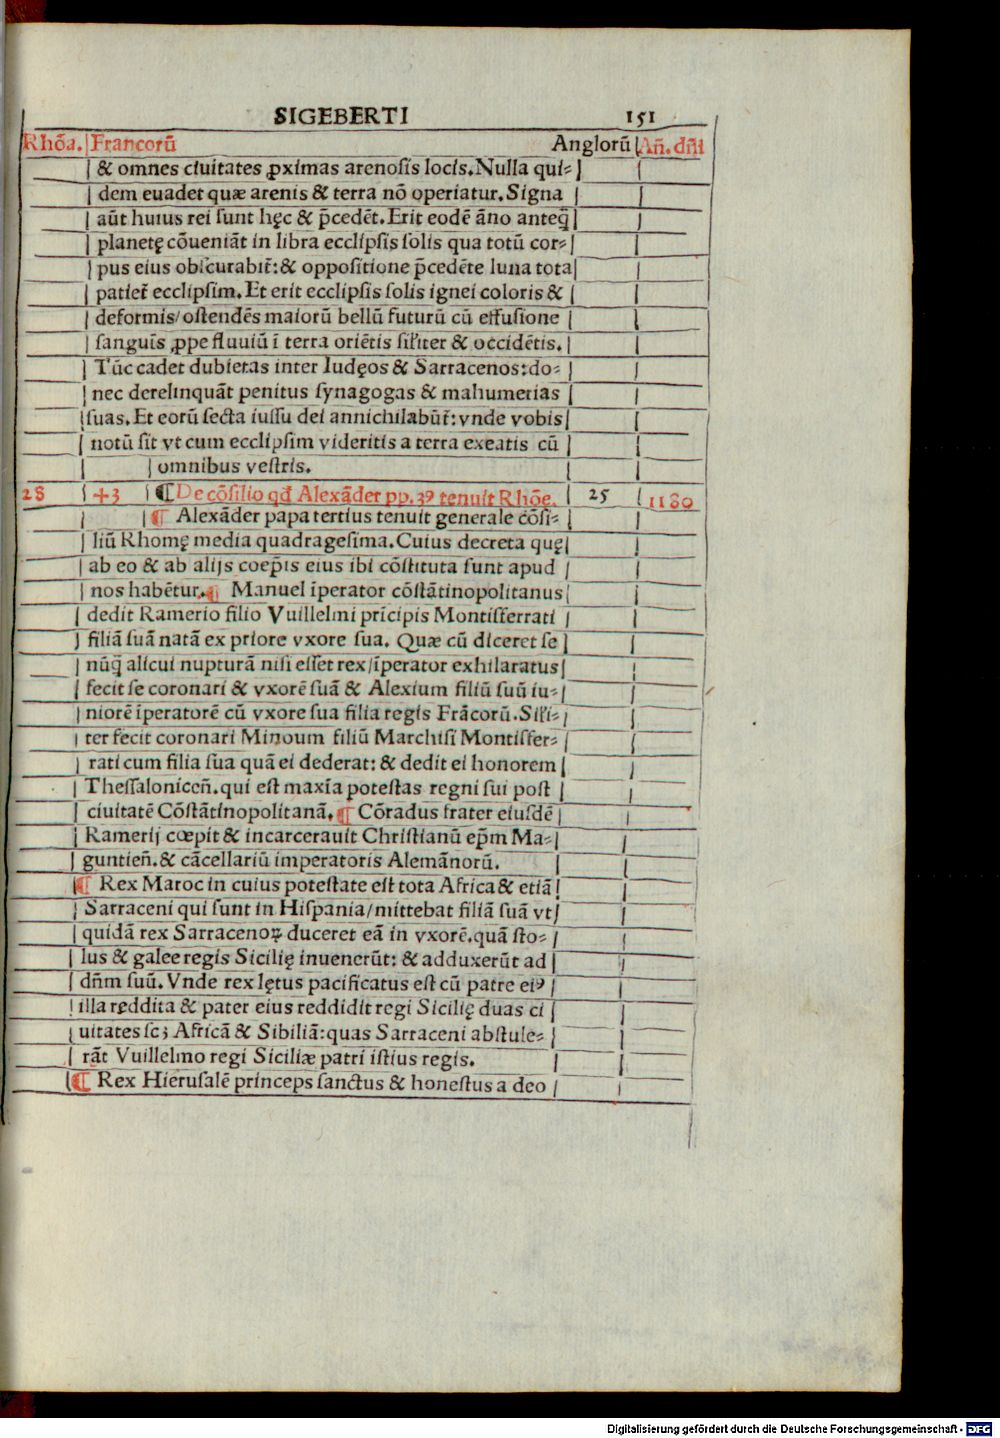 SIGEBERTI 151
Rhōa. Francorū Anglorū Añ. dñi
& omnes ciuitates ꝓximas arenosis locis. Nulla qui⸗
dem euadet quæ arenis & terra nō operiatur. Signa
aūt huius rei sunt hęc & p̄cedēt. Erit eodē āno anteq̄
planetę cōueniāt in libra ecclipsis solis qua totū cor⸗
pus eius obscurabit̄: & oppositione p̄cedēte luna tota
patiet̄ ecclipsim. Et erit ecclipsis solis ignei coloris &
deformis/ostendēs maiorū bellū futurū cū effusione
sanguīs ꝓpe fluuiū ī terra oriētis sil̄iter & occidētis.
Tūc cadet dubietas inter Iudęos & Sarracenos: do⸗
nec derelinquāt penitus synagogas & mahumerias
suas. Et eorū secta iussu dei annichilabūt̄: vnde vobis
notū sit vt cum ecclipsim videritis a terra exeatis cū
omnibus vestris.
28 43 ¶ De cōsilio qđ Alexāder pp. 39 tenuit Rhōe. 25 1180
¶ Alexāder papa tertius tenuit generale cōsi⸗
liū Rhomę media quadragesima. Cuius decreta quę
ab eo & ab alijs coep̄is eius ibi cōstituta sunt apud
nos habētur. ¶ Manuel īperator cōstātinopolitanus
dedit Ramerio filio Vuillelmi prīcipis Montisferrati
filiā suā natā ex priore vxore sua. Quæ cū diceret se
nūq̄ alicui nupturā nisi esset rex/īperator exhilaratus
fecit se coronari & vxorē suā & Alexium filiū suū iu⸗
niorē īperatorē cū vxore sua filia regis Frācorū. Sil̄i⸗
ter fecit coronari Minoum filiū Marchisi Montisfer⸗
rati cum filia sua quā ei dederat: & dedit ei honorem
Thessaloniceñ. qui est maxīa potestas regni sui post
ciuitatē Cōstātinopolitanā. ¶ Cōradus frater eiusdē
Ramerij cœpit & incarcerauit Christianū ep̄m Ma⸗
guntieñ. & cācellariū imperatoris Alemānorū.
¶ Rex Maroc in cuius potestate est tota Africa & etiā
Sarraceni qui sunt in Hispania/mittebat filiā suā vt
quidā rex Sarracenoꝝ duceret eā in vxorē. quā sto⸗
lus & galee regis Sicilię inuenerūt: & adduxerūt ad
dñm suū. Vnde rex lętus pacificatus est cū patre eiꝰ
illa reddita & pater eius reddidit regi Sicilię duas ci
uitates scꝫ Africā & Sibiliā: quas Sarraceni abstule⸗
rāt Vuillelmo regi Siciliæ patri istius regis.
¶ Rex Hierusalē princeps sanctus & honestus a deo
Digitalisierung gefördert durch die Deutsche Forschungsgemeinschaft - DFG